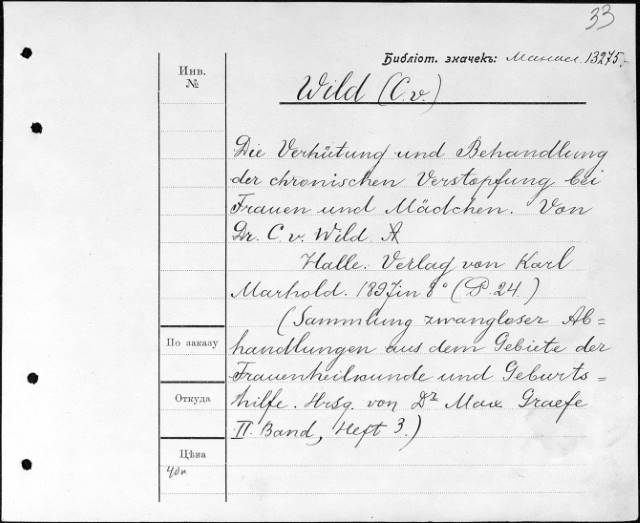 33
Библiот. значекъ: Манасе. 13275.
Инв.
№
Wild (C. v.)
Die Verhütung und Behandlung
der chronischen Verstopfung bei
Frauen und Mädchen. Von
Dr. C. v. Wild. A
Halle. Verlag von Karl
Marhold. 1897 in 8° (P. 24.)
(Sammlung zwangloser Ab=
handlungen aus dem Gebiete der
Frauenheilkunde und Geburts=
hilfe. Hrsg. von Dr Max Graefe
II. Band, Heft 3.)
По заказу
Откуда
Цѣна